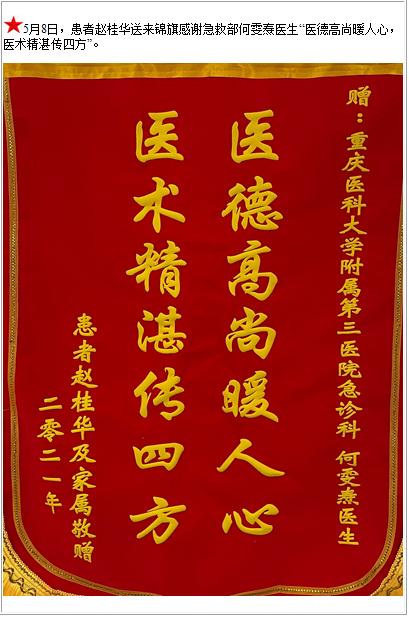 5月8日，患者赵桂华送来锦旗感谢急救部何雯熹医生“医德高尚暖人心，
医术精湛传四方”。
赠：重庆医科大学附属第三医院急诊科 何雯熹医生
医德高尚暖人心
医术精湛传四方
患者赵桂华及家属敬赠
二零二一年